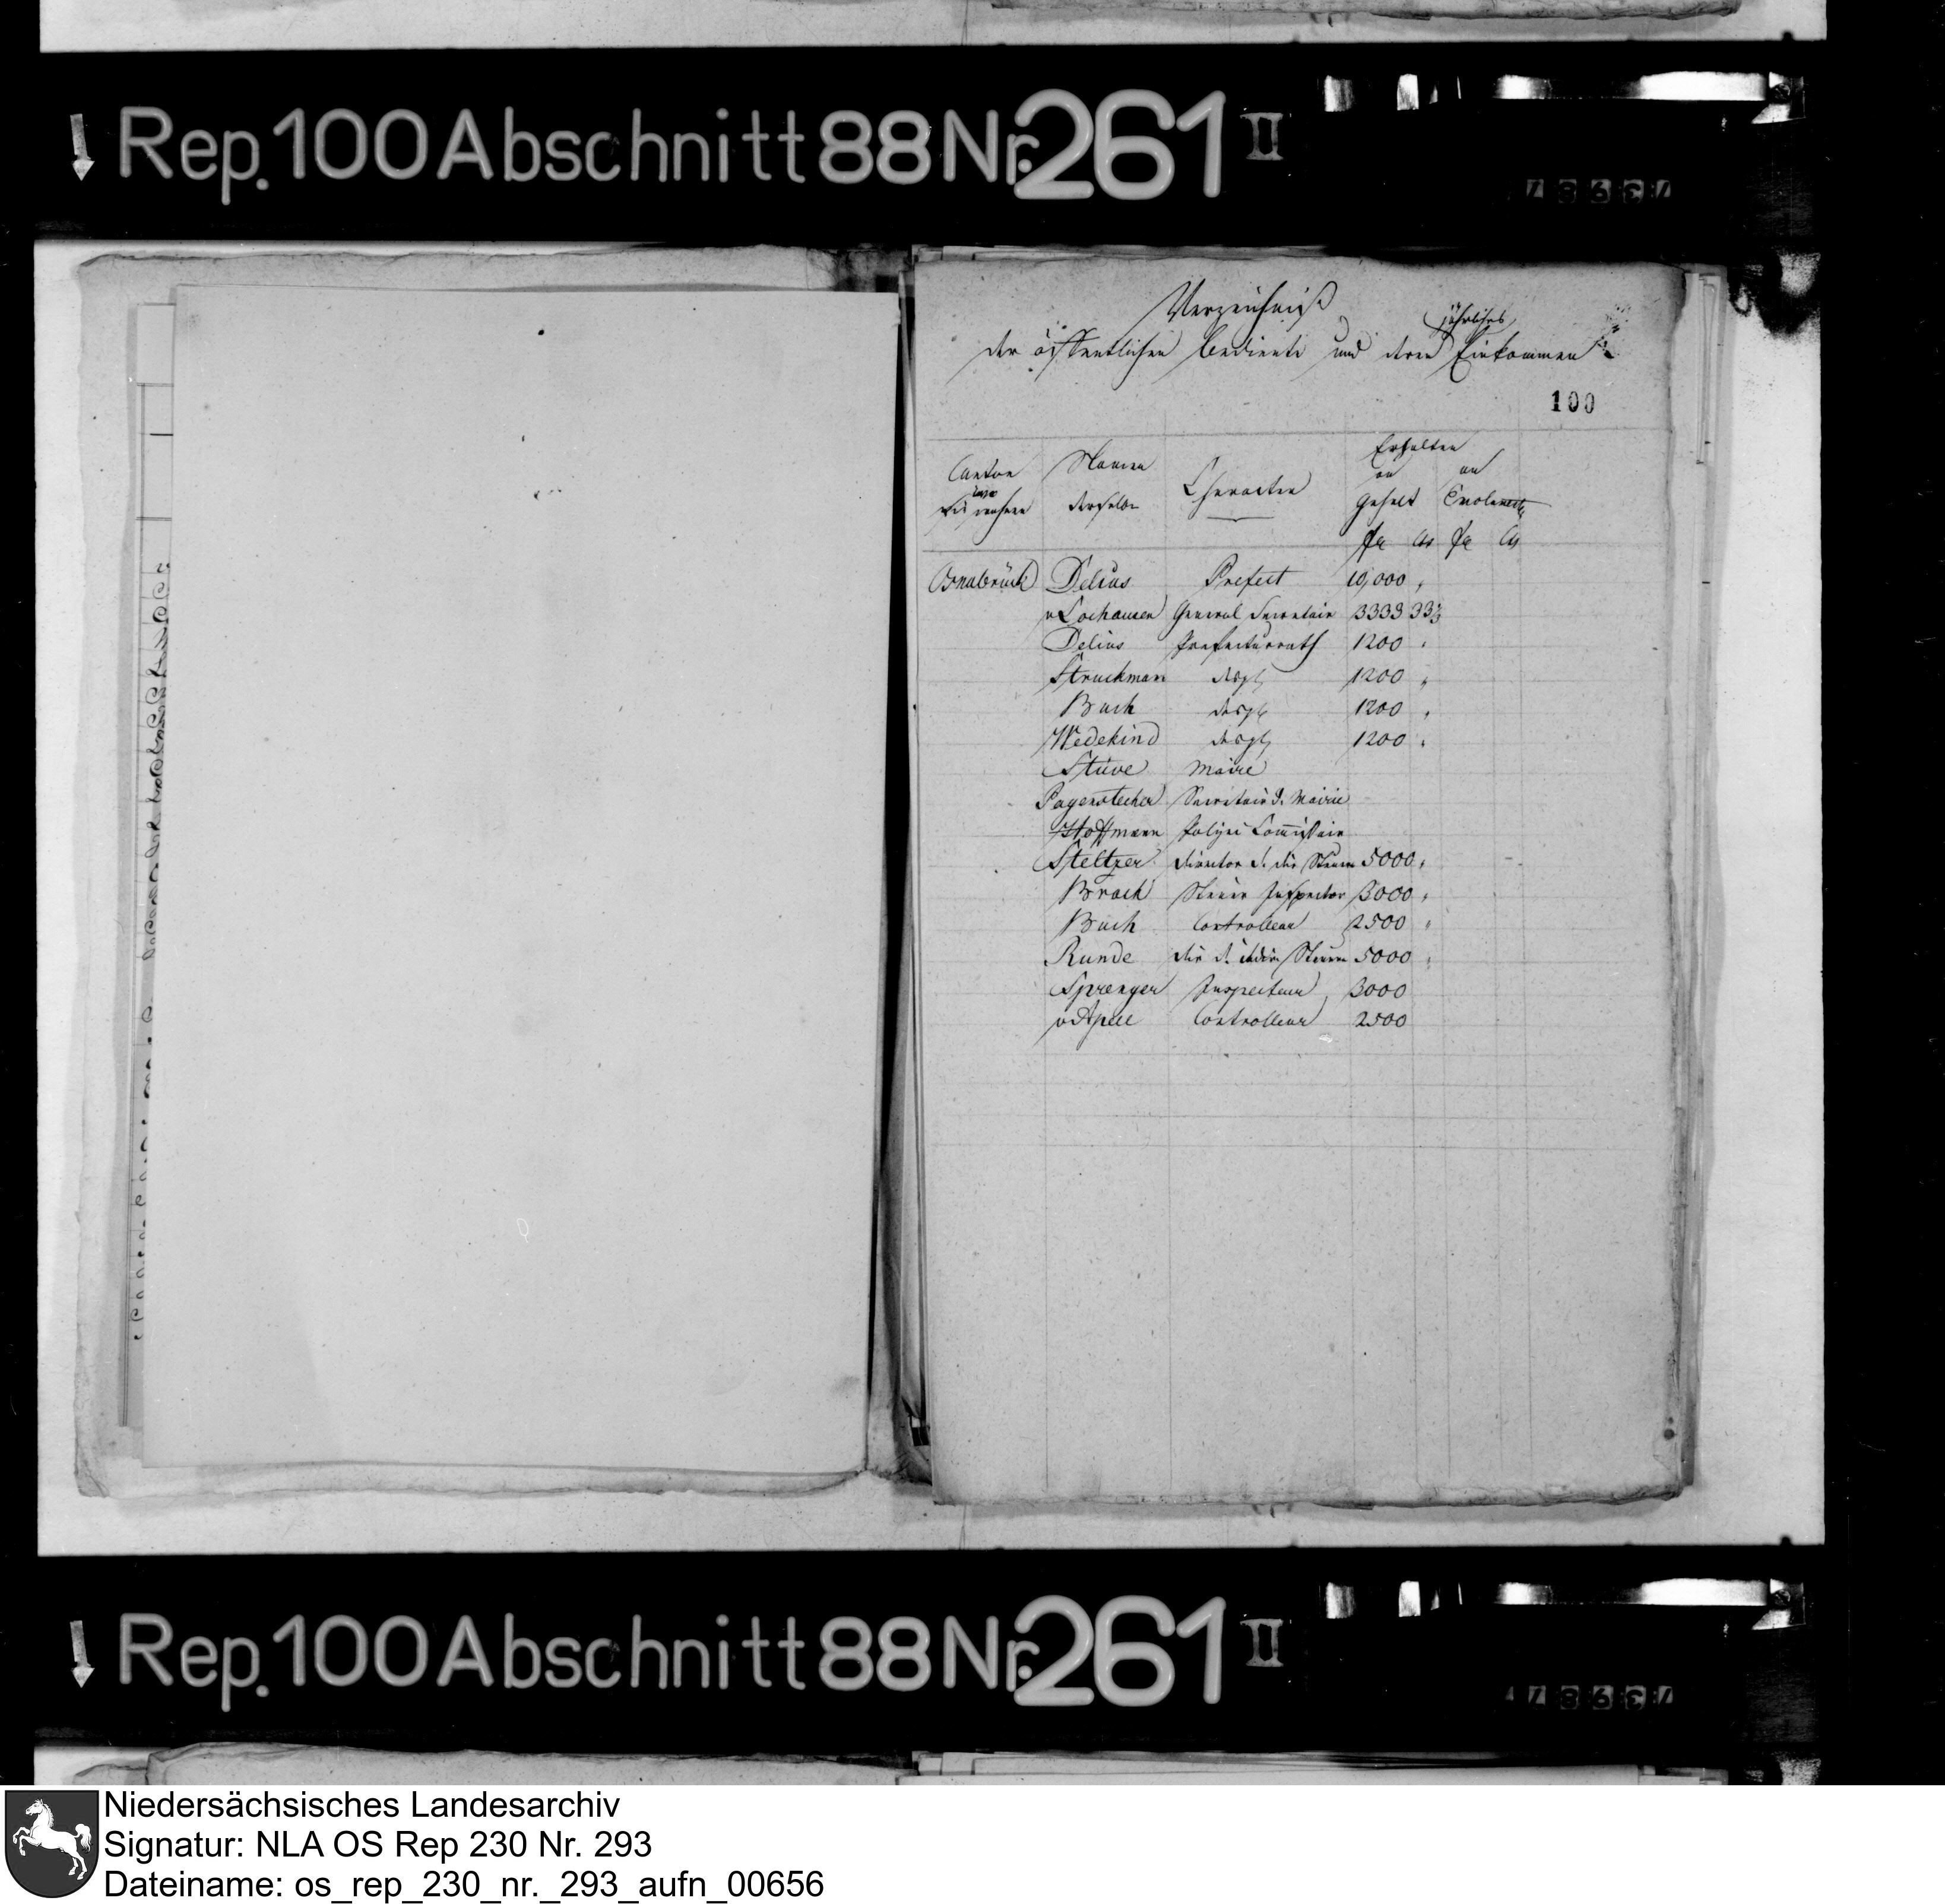 Rep. 100 Abschnitt 88 Nr. 261 II
73987
Verzeichniß
jährliches
der öffentlichen bediente und deren Einkommen
100
Canton
wo
sie wohnen
Namen
derselben
Character
Erhalten
an Gehalt
an Emolumente
fr cs fr cs
Osnabrück Delius Prefect 10,000 "
v Lochausen General Secretair 3333 33⅓
Delius Prefecturrath 1200 "
Struckmann desgl 1200 "
Buch desgl 1200 "
Wedekind desgl 1200 "
Stüve Maire
Pagenstecher Secretair d. Mairie
Hoffmann Polizei Commissair
Steltzer Director d. dir Steuern 5000 "
Brack Steuer Inspector 3000 "
Buch Controlleur 2500 "
Runde Dir d. indir Steuern 5000 "
Sprenger Inspecteur 3000
v Apell Controlleur 2500
Rep. 100 Abschnitt 88 Nr. 261 II
73987
Niedersächsisches Landesarchiv
Signatur: NLA OS Rep 230 Nr. 293
Dateiname: os_rep_230_nr._293_aufn_00656